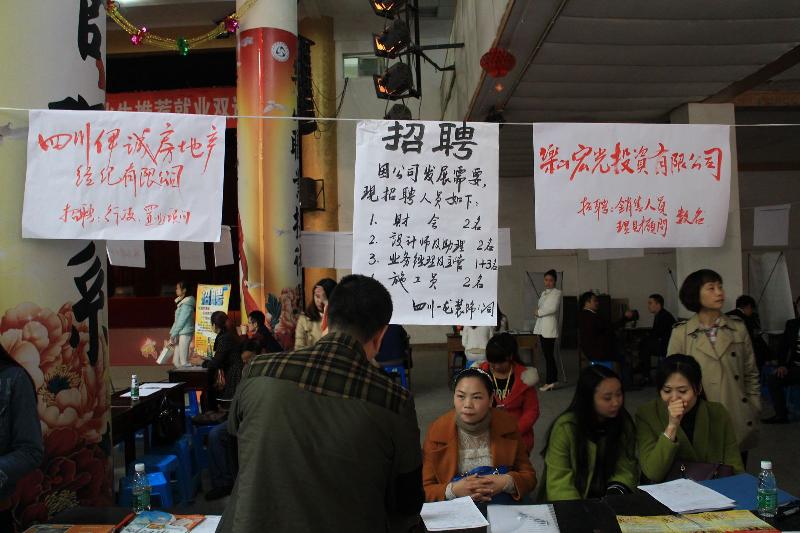 四川伊诚房地产
经纪有限公司
招聘:行政 置业顾问
招聘
因公司发展需要,
现招聘人员如下:
1. 财会 2名
2. 设计师及助理 2名
3. 业务经理及主管 1+3名
施工员 2名
四川一龙装饰公司
乐山宏光投資有限公司
招聘:銷售人员
理财顧問 数名
招聘